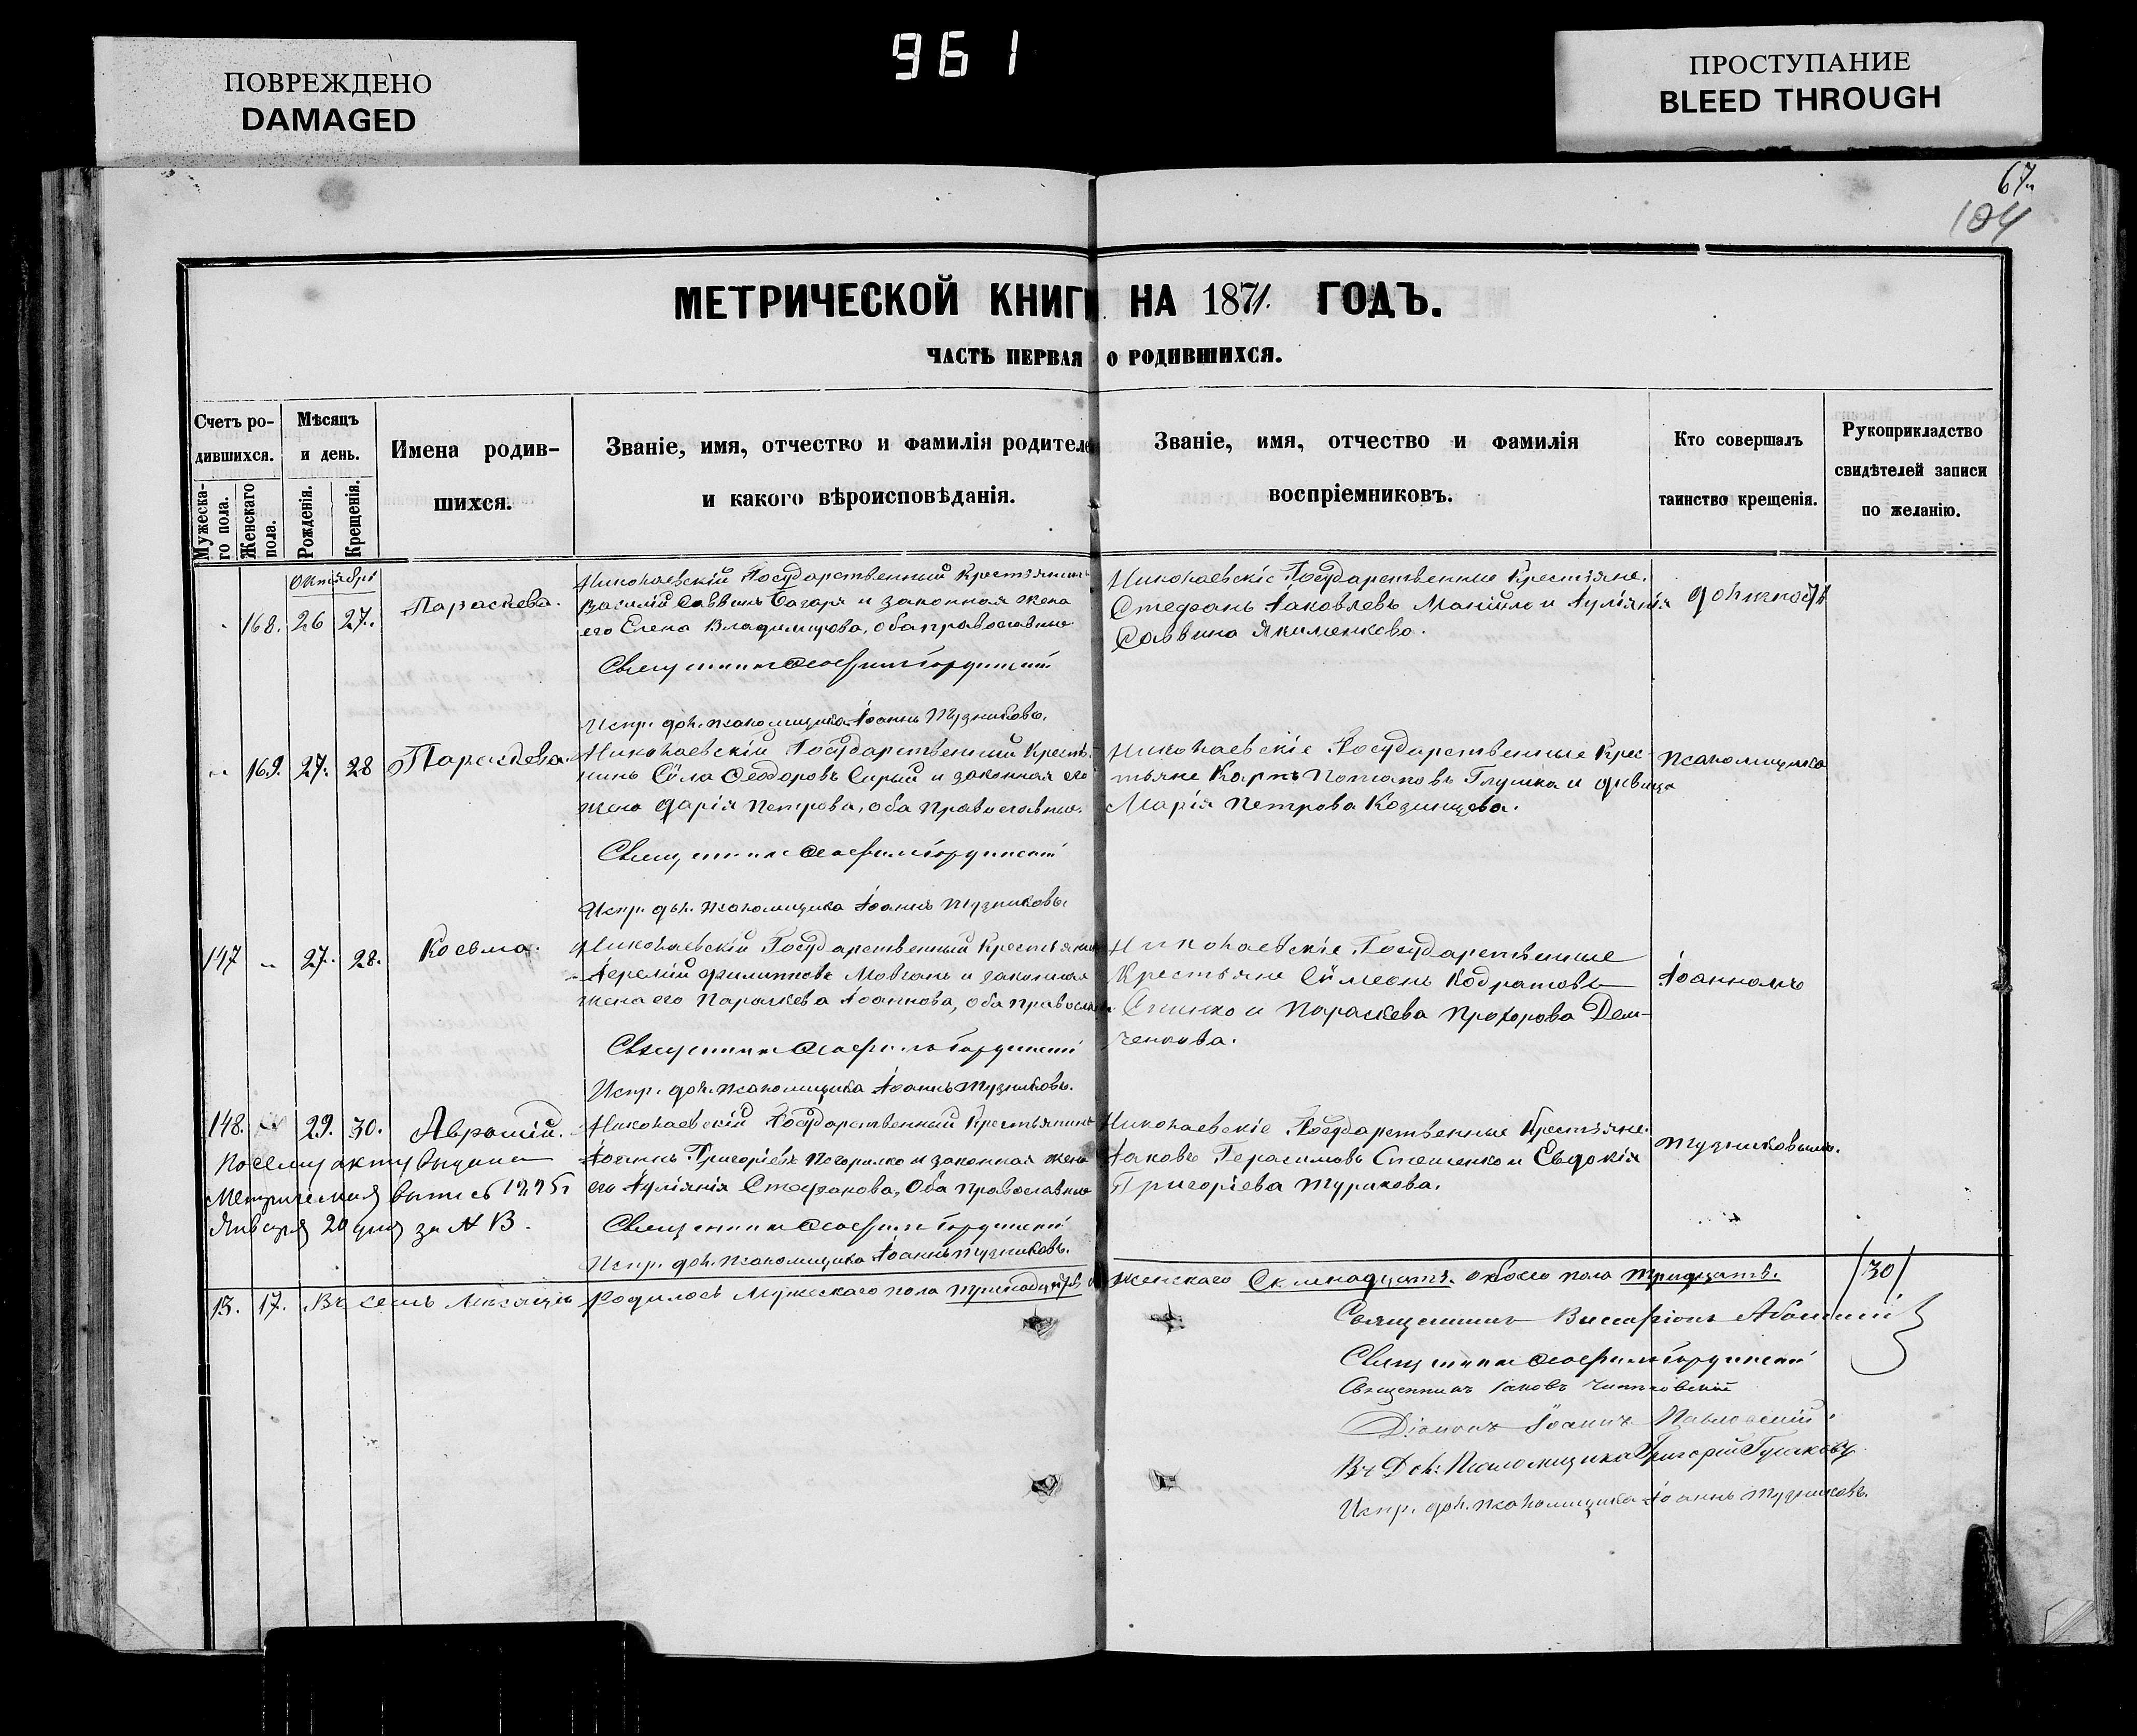 ПОВРЕЖДЕНО
DAMAGED
961
ПРОСТУПАНИЕ
BLEED THROUGH
67
104
МЕТРИЧЕСКОЙ КНИГИ НА 1871. ГОДЪ.
ЧАСТЬ ПЕРВАЯ О РОДИВШИХСЯ.
Счетъ ро-
дившихся.
Мужеска-
го пола.
Женскаго
пола.
Мѣсяцъ
и день.
Рожденія.
Крещенія.
Имена родив-
шихся.
Званіе, имя, отчество и фамилія родителе
и какого вѣроисповѣданія.
Званіе, имя, отчество и фамилія
воспріемниковъ.
Кто совершалъ
таинство крещенія.
Рукоприкладство
свидѣтелей записи
по желанію.
Октябрь
168. 26 27. Параскева.
Николаевскій Государственный Крестьянинъ
Василій Саввинъ Багаря и законная жена
его Елена Владимирова, оба православные
Священникъ
Испр. дол. псаломщика Іоаннъ Тузниковъ.
Николаевскіе Государственные Крестьяне.
Стефанъ Іаковлевъ Манійло и Іуліанія
Саввина Якименкова.
должность
169. 27. 28 Параскева.
Николаевскій Государственный Кресть-
нинъ Сѵла Ѳеодоровъ Сирый и законная его
жена Дарія Петрова, оба православные.
Священникъ
Испр. дол. псаломщика Іоаннъ Тузниковъ
Николаевскіе Государственные Крес-
тьяне Карпъ Потаповъ Глушка и дѣвица
Марія Петрова Козинцева.
Псаломщика
147 „ 27. 28. Косьма.
Николаевскій Государственный Крестьянинъ
Іеремій Филипповъ Мовчанъ и законная
жена его Параскева Іоаннова, оба православн.
Священникъ
Испр. дол. псаломщика Іоаннъ Тузниковъ.
Николаевскіе Государственные
Крестьяне Сѵмеонъ Кодратовъ
и Параскева Прохорова Дем-
ченкова.
Іоанномъ
148. 29. 30. Аврамій.
По сему акту выдана
Метрическая выпись 1925 г
Января 20 дня за N В.
Николаевскій Государственный Крестьянинъ
Іоаннъ Григоріевъ Погорилко и законная жена
его Іуліянія Стефанова, Оба Православные
Священникъ
Испр. дол. псаломщика Іоаннъ Тузниковъ.
Николаевскіе Государственные Крестьяне.
Іаковъ Герасимовъ Стешенко и Евдокія
Григоріева Турикова.
Тузниковымъ.
13. 17. Въ семъ мѣсяцѣ родилось Мужескаго пола тринадцать, а женскаго Семнадцать. обоего пола тридцать.
/30/
Священникъ Виссаріонъ
Священникъ
Священникъ Іаковъ
Діаконъ Іоаннъ Павловскій.
Въ Дол: Псаломщика Григорій Гулаковъ
Испр. дол. псаломщика Іоаннъ Тузниковъ.